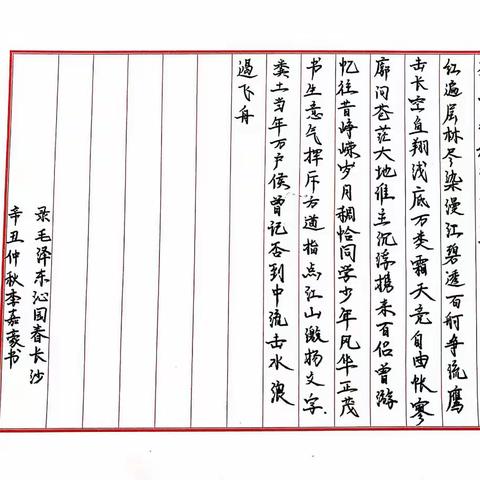 红遍层林尽染漫江碧透百舸争流鹰
击长空鱼翔浅底万类霜天竞自由怅寥
廓问苍茫大地谁主沉浮携来百侣曾游
忆往昔峥嵘岁月稠恰同学少年风华正茂
书生意气挥斥方遒指点江山激扬文字.
粪土当年万户侯曾记否到中流击水浪
遏飞舟
录毛泽东沁园春长沙
辛丑仲秋李嘉豪书